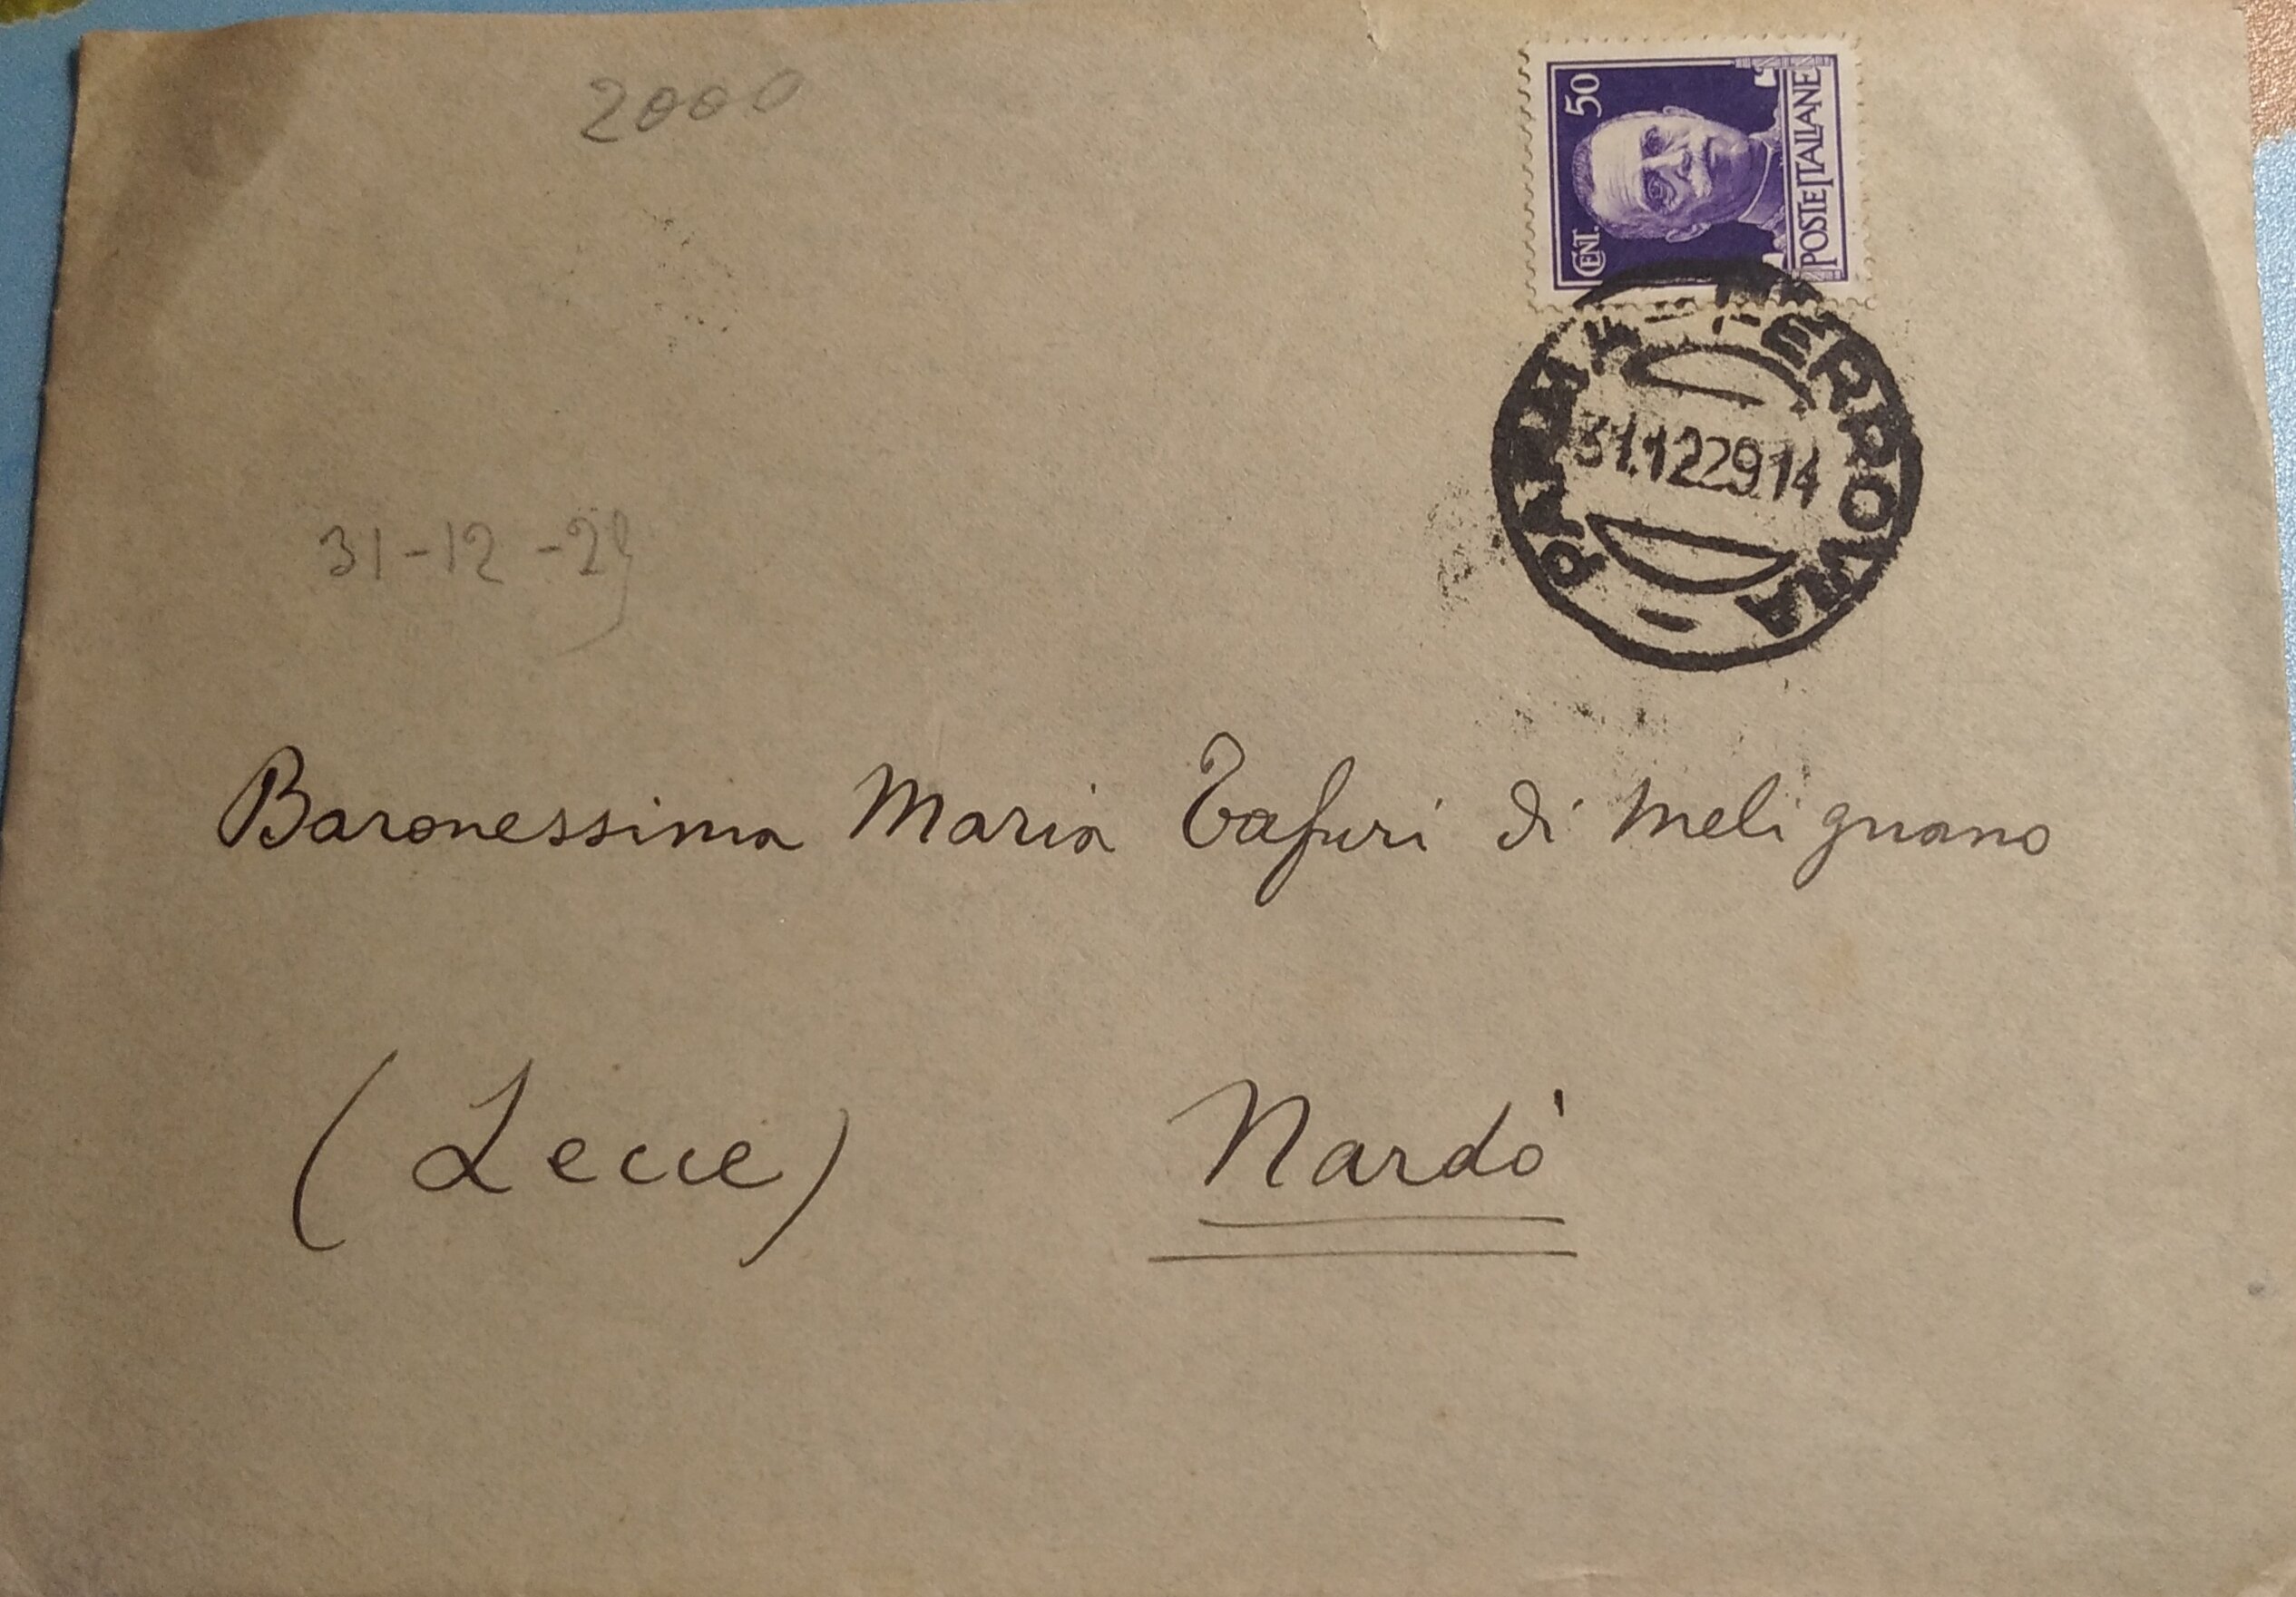 2000
CENT. 50
POSTE ITALIANE
PARMA FERROVIA
31.12.29.14
31-12-29
Baronessima Maria Tafuri di Melignano
(Lecce) Nardò